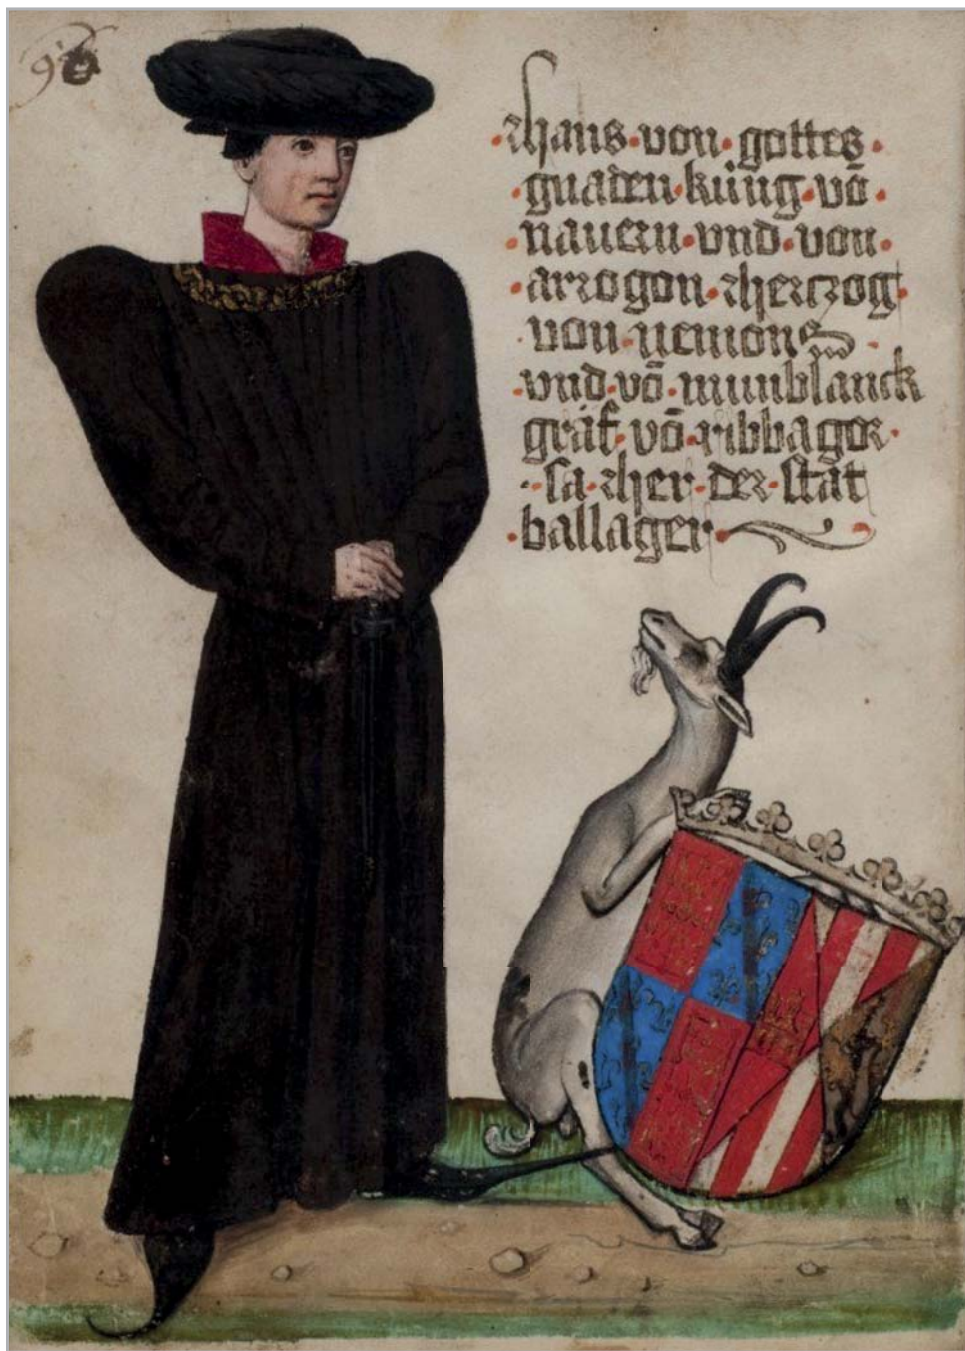 96
Jhans · von · gottes ·
· gnaden · küng · vō ·
· nauern · vnd · von ·
· arrogon · Jherczog ·
· von · nemons ·
· vnd · vō · munblanck
graf · vō · ribbager ·
· sa · Jher · der · stat
· ballager ·